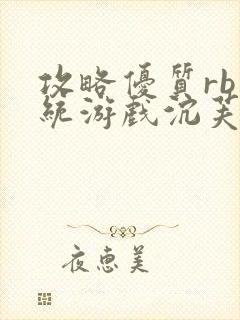 攻略優質rb
統游戲沉芙
夜惠美